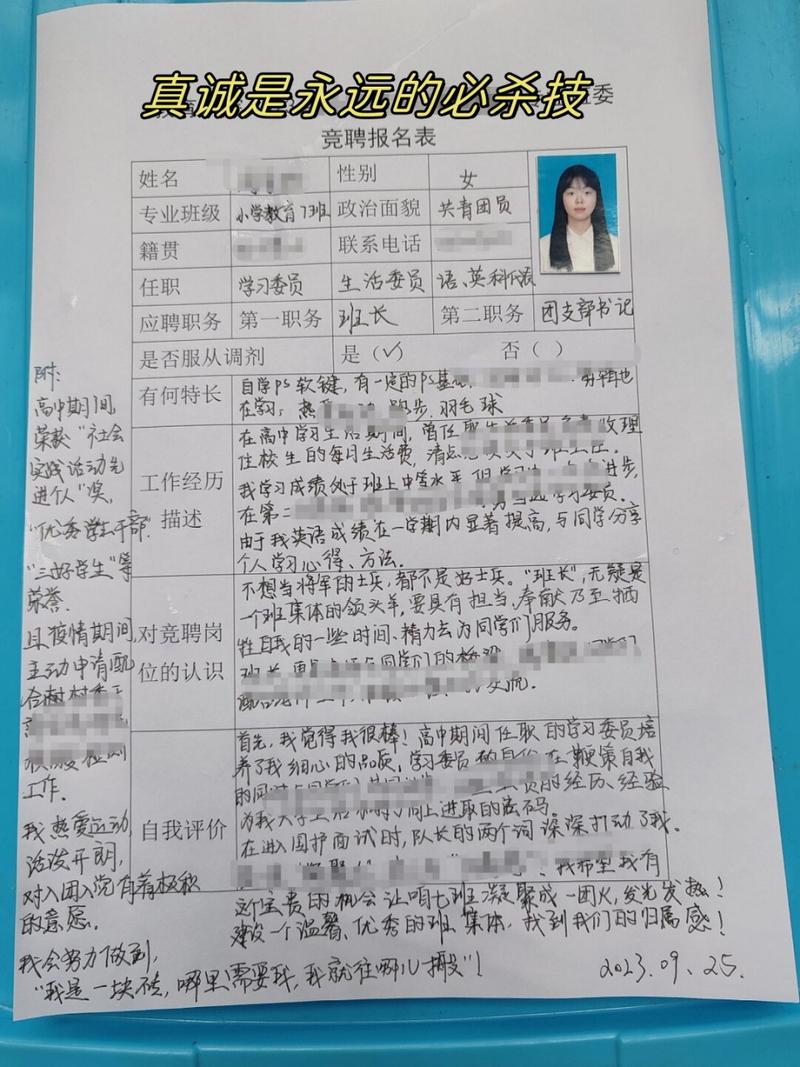 真诚是永远的必杀技
委
竞聘报名表
姓名 性别 女
专业班级 小学教育7班 政治面貌 共青团员
籍贯 联系电话
任职 学习委员 生活委员 语、英科代表
应聘职务 第一职务 班长 第二职务 团支部书记
是否服从调剂 是（✓） 否（ ）
有何特长
自学PS软键，有一定的PS基
在学习；热 跑步、羽毛球
工作经历
描述
在高中学习生活期间，曾任 收理
住校生的每月生活费，清点
我学习成绩处于班上中等水平，但 进步，
在第二 学习委员。
由于我英语成绩在一学期内显著提高，与同学分享
个人学习心得、方法。
对竞聘岗
位的认识
不想当将军的士兵，都不是好士兵。“班长”，无疑是
一个班集体的领头羊，要具有担当、奉献乃至牺
牲自我的一些时间、精力去为同学们服务。
班长 与同学们的桥梁
交流．
自我评价
首先，我觉得我很棒！高中期间任职的学习委员培
养了我细心的品质，学习委员的身份在鞭策自我
的同 的经历、经验
为我大学生活 向上进取的密码。
在进入国护面试时，队长的两个词深深打动了我。
我希望我有
这个宝贵的机会让咱七班凝聚成一团火，发光发热！
建设一个温馨、优秀的班集体，找到我们的归属感！
附：
高中期间，
荣获“社会
实践活动先
进个人”奖，
“优秀学生干部”
“三好学生”等
荣誉．
且疫情期间，
主动申请配
合
工作．
我热爱运动，
活泼开朗，
对入团入党有着积极
的意愿．
我会努力做到，
“我是一块砖，哪里需要我，我就往哪儿搬”！
2023.09.25.